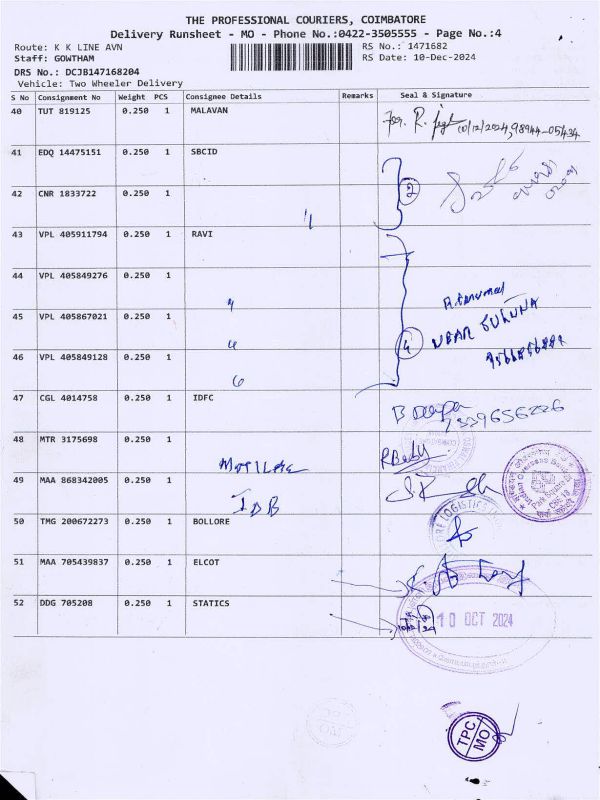 THE PROFESSIONAL COURIERS, COIMBATORE
Delivery Runsheet - MO - Phone No.:0422-3505555 - Page No.:4
Route: K K LINE AVN
RS No.: 1471682
Staff: GOWTHAM
RS Date: 10-Dec-2024
DRS No.: DCJB147168204
Vehicle: Two Wheeler Delivery
S No Consignment No Weight PCS Consignee Details Remarks Seal & Signature
40 TUT 819125 0.250 1 MALAVAN
10/12/2024, 98944-05434
41 EDQ 14475151 0.250 1 SBCID
42 CNR 1833722 0.250 1
2
43 VPL 405911794 0.250 1 RAVI
44 VPL 405849276 0.250 1
45 VPL 405867021 0.250 1
NEAR
46 VPL 405849128 0.250 1
4
47 CGL 4014758 0.250 1 IDFC
B Deepa
7339656226
48 MTR 3175698 0.250 1
49 MAA 868342005 0.250 1
IDB
Indian Overseas Bank
Park Square Br
50 TMG 200672273 0.250 1 BOLLORE
LOGISTICS
51 MAA 705439837 0.250 1 ELCOT
52 DDG 705208 0.250 1 STATICS
10 OCT 2024
TPC
MO